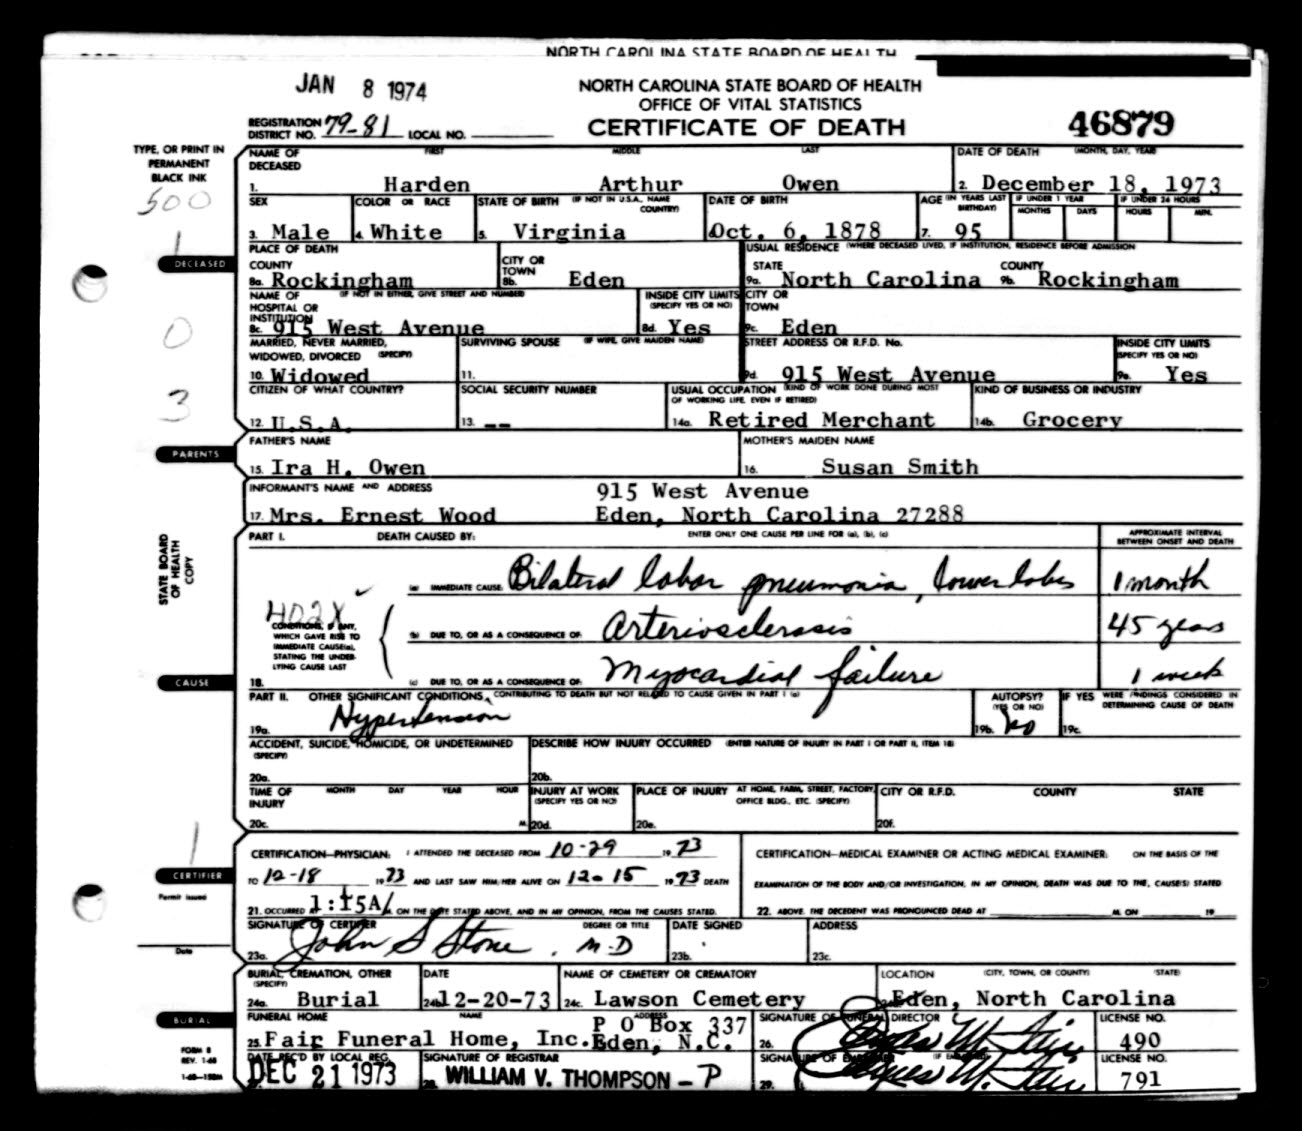 NORTH CAROLINA STATE BOARD OF HEALTH
JAN 8 1974
NORTH CAROLINA STATE BOARD OF HEALTH
OFFICE OF VITAL STATISTICS
REGISTRATION DISTRICT NO. 79-81 LOCAL NO.
CERTIFICATE OF DEATH
46879
TYPE, OR PRINT IN PERMANENT BLACK INK
500
1
DECEASED
0
3
NAME OF DECEASED FIRST MIDDLE LAST DATE OF DEATH (MONTH, DAY, YEAR)
1. Harden Arthur Owen 2. December 18, 1973
SEX COLOR OR RACE STATE OF BIRTH (IF NOT IN U.S.A., NAME COUNTRY) DATE OF BIRTH AGE (IN YEARS LAST BIRTHDAY) IF UNDER 1 YEAR IF UNDER 24 HOURS
MONTHS DAYS HOURS MIN.
3. Male 4. White 5. Virginia Oct. 6, 1878 7. 95
PLACE OF DEATH USUAL RESIDENCE (WHERE DECEASED LIVED, IF INSTITUTION, RESIDENCE BEFORE ADMISSION)
COUNTY CITY OR TOWN STATE COUNTY
8a. Rockingham 8b. Eden 9a. North Carolina 9b. Rockingham
NAME OF HOSPITAL OR INSTITUTION (IF NOT IN EITHER, GIVE STREET AND NUMBER) INSIDE CITY LIMITS (SPECIFY YES OR NO) CITY OR TOWN
8c. 915 West Avenue 8d. Yes 9c. Eden
MARRIED, NEVER MARRIED, WIDOWED, DIVORCED (SPECIFY) SURVIVING SPOUSE (IF WIFE, GIVE MAIDEN NAME) STREET ADDRESS OR R.F.D. No. INSIDE CITY LIMITS (SPECIFY YES OR NO)
10. Widowed 11. 9d. 915 West Avenue 9e. Yes
CITIZEN OF WHAT COUNTRY? SOCIAL SECURITY NUMBER USUAL OCCUPATION (KIND OF WORK DONE DURING MOST OF WORKING LIFE, EVEN IF RETIRED) KIND OF BUSINESS OR INDUSTRY
12. U.S.A. 13. -- 14a. Retired Merchant 14b. Grocery
PARENTS
FATHER'S NAME MOTHER'S MAIDEN NAME
15. Ira H. Owen 16. Susan Smith
INFORMANT'S NAME AND ADDRESS 915 West Avenue
17. Mrs. Ernest Wood Eden, North Carolina 27288
STATE BOARD OF HEALTH COPY
PART I. DEATH CAUSED BY: ENTER ONLY ONE CAUSE PER LINE FOR (a), (b), (c) APPROXIMATE INTERVAL BETWEEN ONSET AND DEATH
(a) IMMEDIATE CAUSE: Bilateral lobar pneumonia, lower lobes 1 month
402X
CONDITIONS, IF ANY, WHICH GAVE RISE TO IMMEDIATE CAUSE(a), STATING THE UNDERLYING CAUSE LAST
(b) DUE TO, OR AS A CONSEQUENCE OF: Arteriosclerosis 45 years
18. (c) DUE TO, OR AS A CONSEQUENCE OF: Myocardial failure 1 week
CAUSE
PART II. OTHER SIGNIFICANT CONDITIONS, CONTRIBUTING TO DEATH BUT NOT RELATED TO CAUSE GIVEN IN PART I (a) AUTOPSY? (YES OR NO) IF YES WERE FINDINGS CONSIDERED IN DETERMINING CAUSE OF DEATH
19a. Hypertension 19b. No 19c.
ACCIDENT, SUICIDE, HOMICIDE, OR UNDETERMINED (SPECIFY) DESCRIBE HOW INJURY OCCURRED (ENTER NATURE OF INJURY IN PART I OR PART II, ITEM 18)
20a. 20b.
TIME OF INJURY MONTH DAY YEAR HOUR INJURY AT WORK (SPECIFY YES OR NO) PLACE OF INJURY AT HOME, FARM, STREET, FACTORY, OFFICE BLDG., ETC. (SPECIFY) CITY OR R.F.D. COUNTY STATE
20c. M. 20d. 20e. 20f.
1
CERTIFIER
Permit Issued
Date
CERTIFICATION—PHYSICIAN: I ATTENDED THE DECEASED FROM 10-29 1973
TO 12-18 1973 AND LAST SAW HIM/HER ALIVE ON 12-15 1973 DEATH
21. OCCURRED 1:15A M. ON THE DATE STATED ABOVE, AND IN MY OPINION, FROM THE CAUSES STATED.
CERTIFICATION—MEDICAL EXAMINER OR ACTING MEDICAL EXAMINER: ON THE BASIS OF THE
EXAMINATION OF THE BODY AND/OR INVESTIGATION, IN MY OPINION, DEATH WAS DUE TO THE, CAUSE(S) STATED
22. ABOVE. THE DECEDENT WAS PRONOUNCED DEAD AT M. ON 19
SIGNATURE OF CERTIFIER DEGREE OR TITLE DATE SIGNED ADDRESS
23a. John S Stone, M-D 23b. 23c.
BURIAL, CREMATION, OTHER (SPECIFY) DATE NAME OF CEMETERY OR CREMATORY LOCATION (CITY, TOWN, OR COUNTY) (STATE)
24a. Burial 24b. 12-20-73 24c. Lawson Cemetery Eden, North Carolina
BURIAL
FUNERAL HOME NAME ADDRESS SIGNATURE OF FUNERAL DIRECTOR LICENSE NO.
P O Box 337
25. Fair Funeral Home, Inc. Eden, N.C. 26. 490
FORM 8
REV. 1-68
1-68—150M
DATE REC'D BY LOCAL REG. SIGNATURE OF REGISTRAR SIGNATURE OF EMBALMER (IF EMBALMED) LICENSE NO.
DEC 21 1973 28. WILLIAM V. THOMPSON - P 29. 791